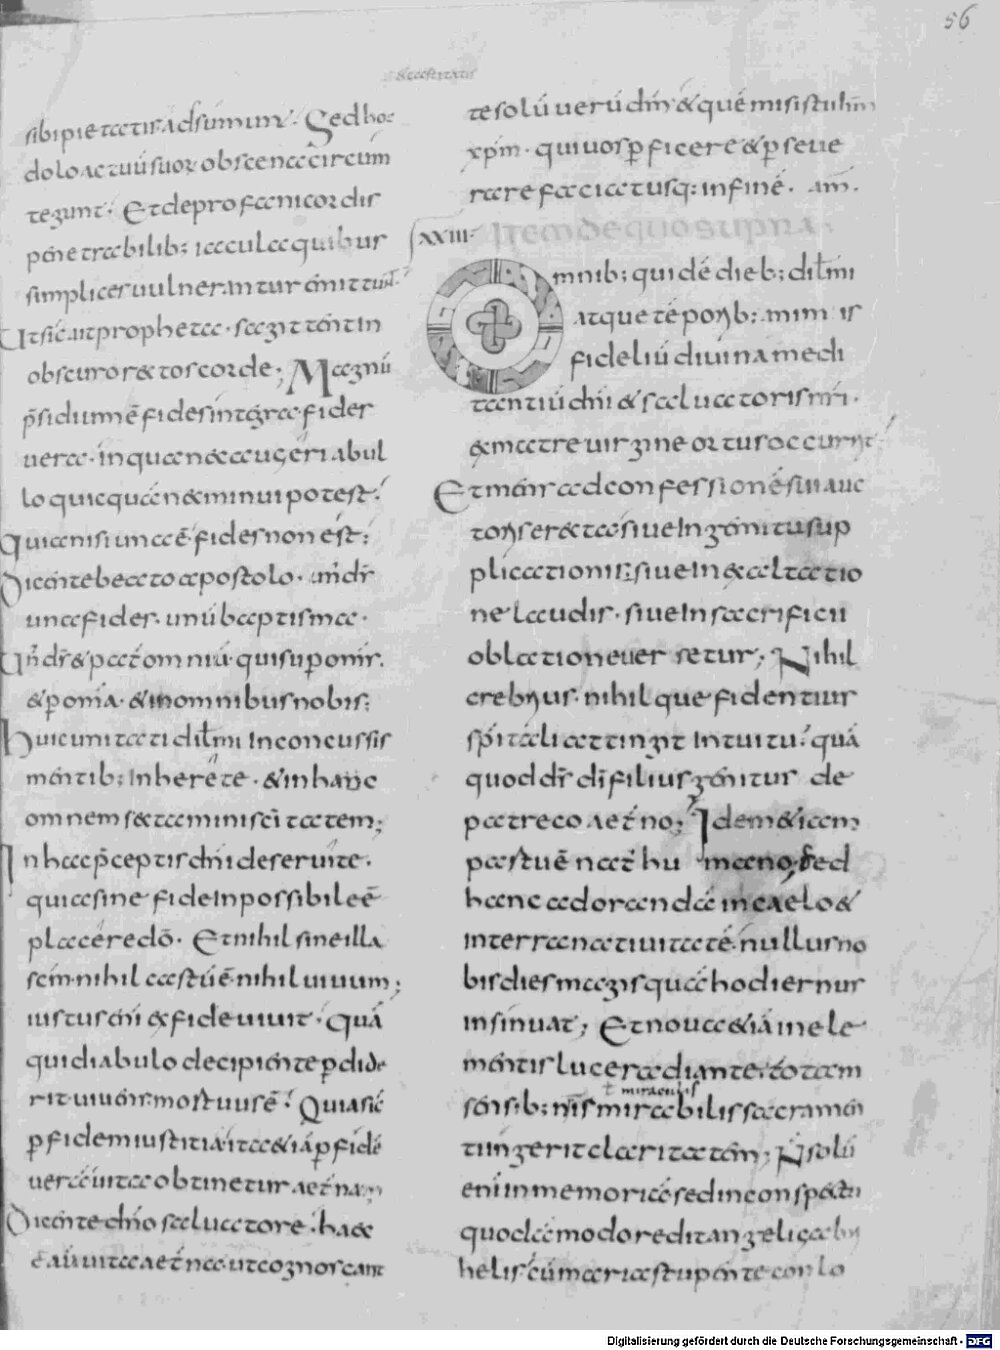 56
sibi pietatis adsumunt. Sed hoc
dolo actuū suoꝝ obscena circum
tegunt. Et de profani cordis
penetrabilib; iacula quibus
simplices vulnerantur emittunt.
Ut sic ait propheta. sagittent in
obscuro rectos corde; Magnū
p̄sidium ē fides integra fides
vera. in qua nec augeri ab ul
lo quicquā nec minui potest.
Quia nisi una ē fides non est;
Dicente beato apostolo. un' d̄s
una fides. unū baptisma.
Un' d̄s & pat̄ omniū. qui sup om̄s.
& p om̄ia. & in omnibus nobis;
Huic unitati dil̄mi inconcussis
mentib; inherete. & in hanc
omnem sectamini sc̄itatem;
In hac p̄ceptis dn̄i deservite.
quia sine fide inpossibile ē
placere dō. Et nihil sine illa
sc̄m. nihil castū ē. nihil vivum;
iustus eni ex fide vivit. Quā
qui diabulo decipiente pdide
rit vivens mortuus ē. Quia sic
p fidem iustitia. ita & iā p fidē
verā vita obtinetur aet̄na.
Dicente dn̄o salvatore. haec
ē aū vita aet̄na. ut cognoscant
te solū verū dm̄ & quē misisti ihm̄
xp̄m. qui vos pficere & pseve
rare faciat usq; in finē. am̄.
XXIII Item de quo supra
Omnib; quidē dieb; dil̄mi
atque tēporib; animis
fideliū divina medi
tantiū dn̄i & salvatoris nr̄i.
ex matre virgine ortus occurrit
Et in ad confessionē sui auc
toris erecta. sive in gemitu sup
plicationis. sive in exaltatio
ne laudis. sive in sacrificii
oblatione versetur; Nihil
crebrius. nihilque fidentius
sp̄italis attingit intuitu. quā
quod d̄s dī filius genitur de
patre coaet̄no; Idem & iam
partu ē nat' humano; Sed
hanc adorandā in caelo &
in terra nativitatē. nullus no
bis dies magis quā hodiernus
insinuat; Et nova & iā in ele
mentis luce radiante. totam
ł miraculis
sensib; nr̄is mirabilis sacramen
ti ingerit claritatem; N̄ solū
enī in memoriā sed in conspectū
quodā modo redit angeli gabri
helis. cū maria stupente conlo
Digitalisierung gefördert durch die Deutsche Forschungsgemeinschaft - DFG